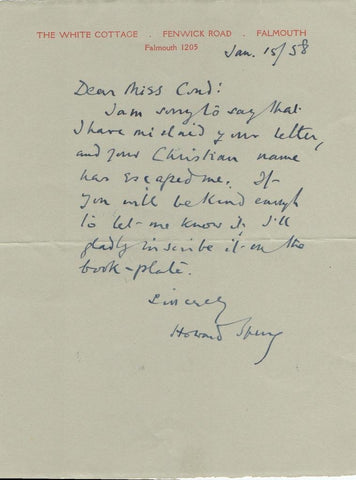 THE WHITE COTTAGE . FENWICK ROAD . FALMOUTH
Falmouth 1205
Jan. 15/58
Dear Miss Cond:
I am sorry to say that
I have mislaid your letter,
and your Christian name
has escaped me. If
you will be kind enough
to let me know it, I'll
gladly inscribe it on the
book-plate.
Sincerely
Howard Spring